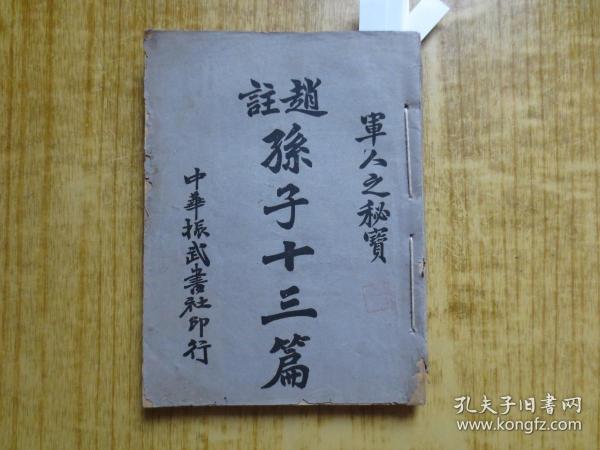 軍人之秘寶
趙註
孫子十三篇
中華振武書社印行
孔夫子旧书网
www.kongfz.com